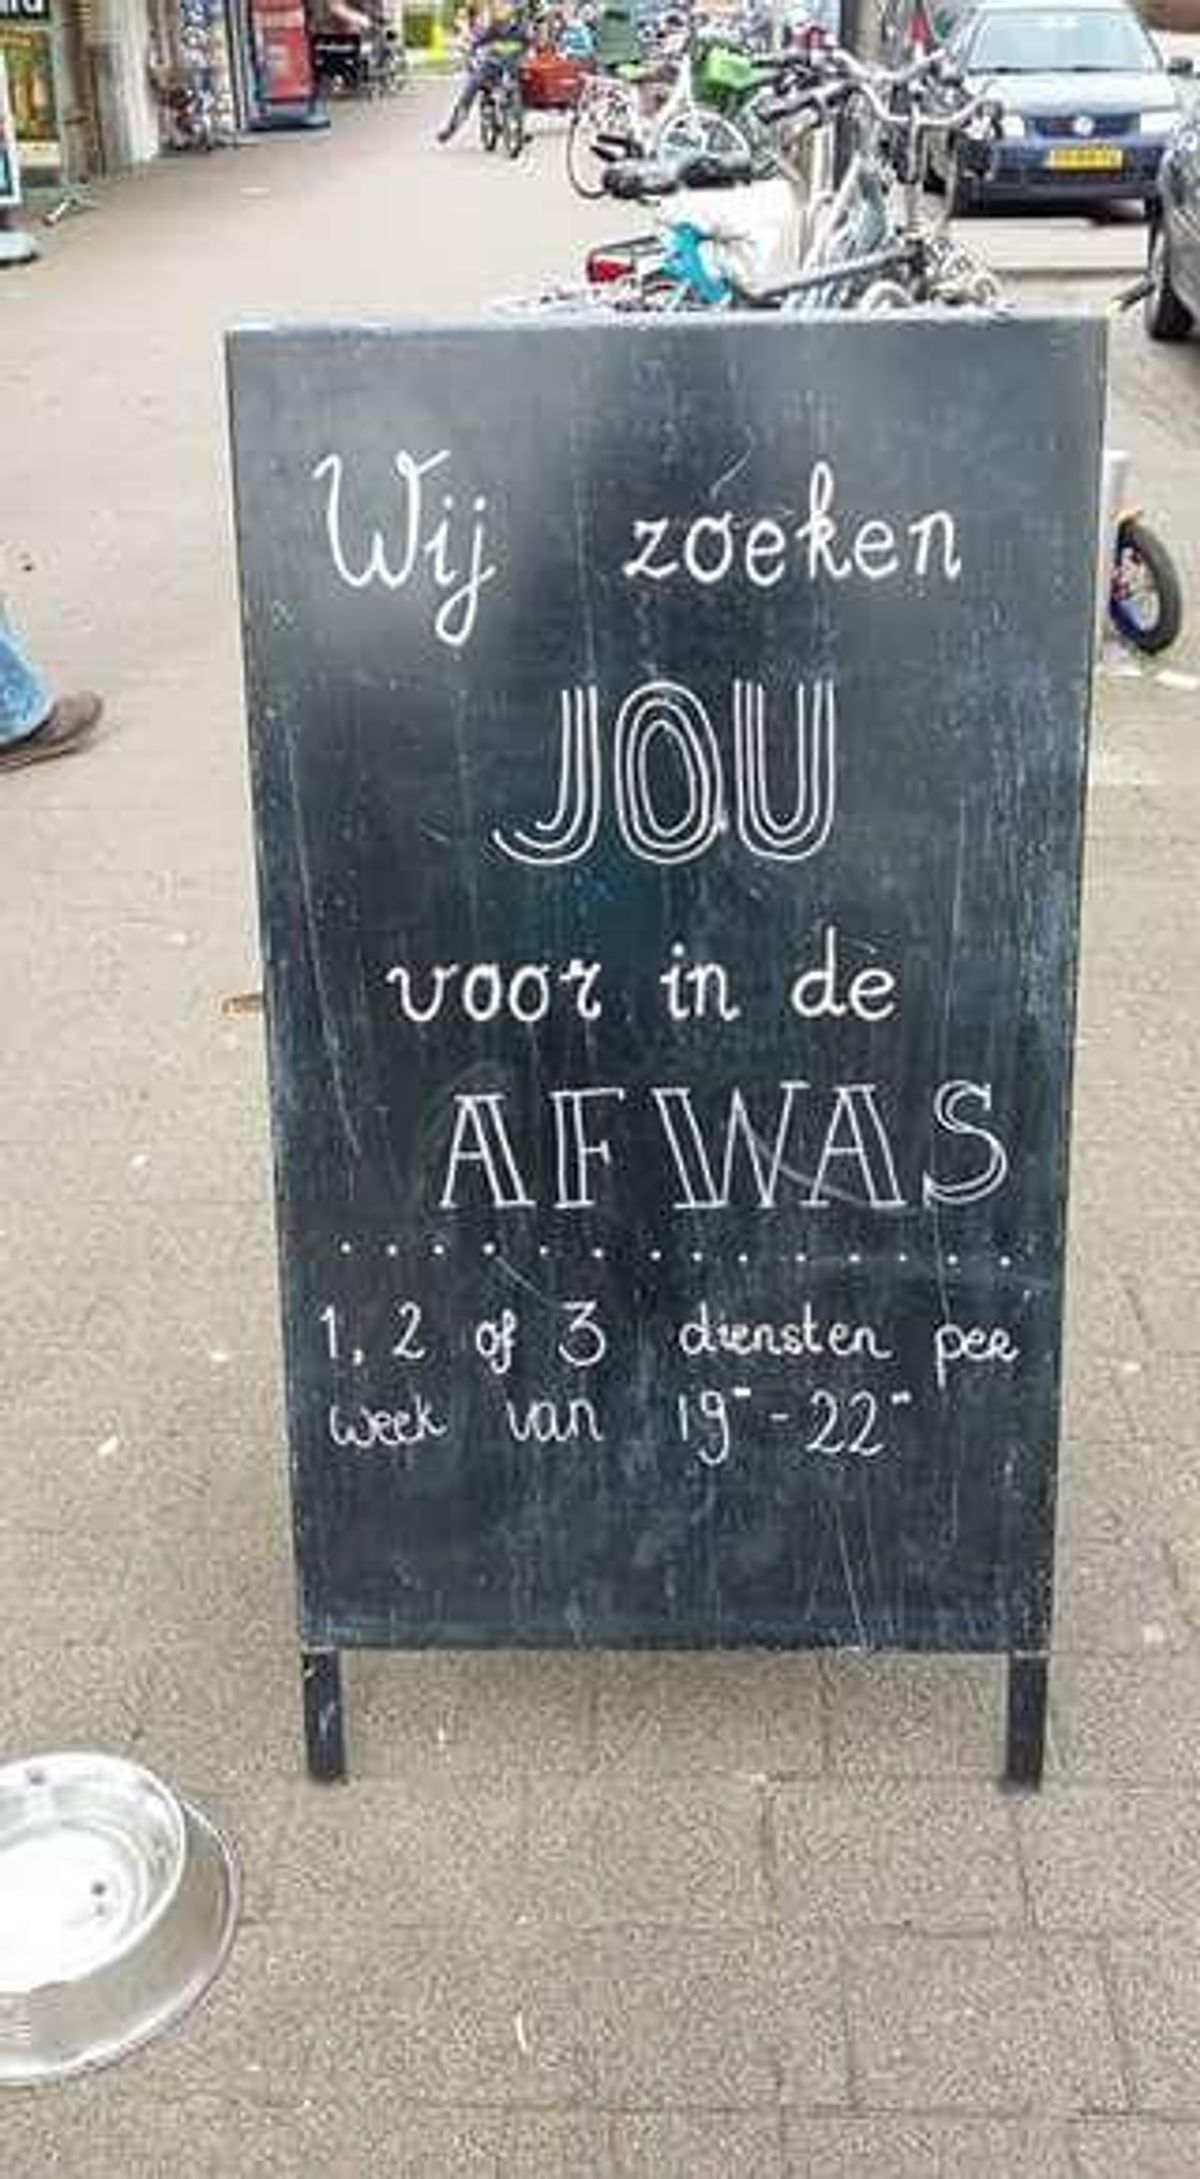 Wij zoeken
JOU
voor in de
AFWAS
1, 2 of 3 diensten per
week van 19" - 22"